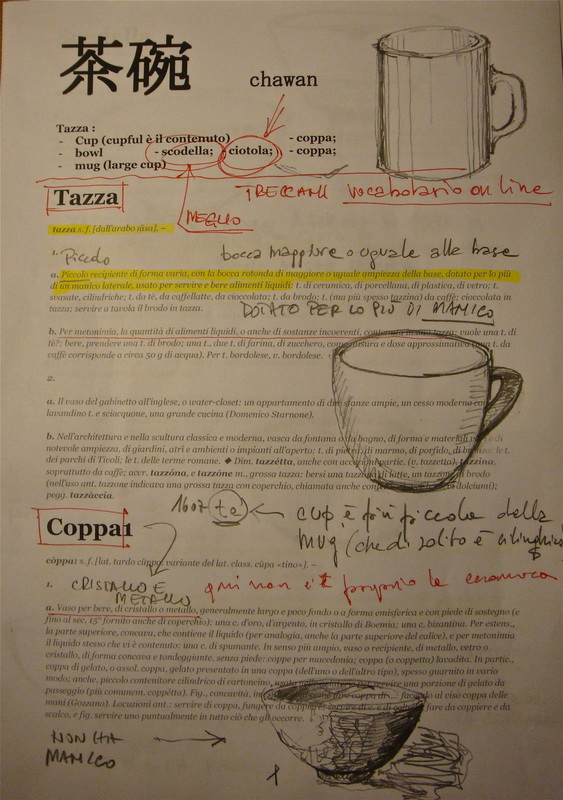 茶碗
chawan
Tazza :
- Cup (cupful è il contenuto) - coppa;
- bowl - scodella; - ciotola; - coppa;
- mug (large cup)
TRECCANI vocabolario on line
Tazza
MEGLIO
tazza s. f. [dall'arabo ṭāsa]. –
1. Piccolo
bocca maggiore o uguale alla base
a. Piccolo recipiente di forma varia, con la bocca rotonda di maggiore o uguale ampiezza della base, dotato per lo più
di un manico laterale, usato per servire e bere alimenti liquidi: t. di ceramica, di porcellana, di plastica, di vetro; t.
svasate, cilindriche; t. da tè, da caffellatte, da cioccolata; t. da brodo; t. (ma più spesso tazzina) da caffè; cioccolata in
tazza; servire a tavola il brodo in tazza.
DOTATO PER LO PIÙ DI MANICO
b. Per metonimia, la quantità di alimenti liquidi, o anche di sostanze incoerenti, contenuta in una tazza: vuole una t. di
tè?; bere, prendere una t. di brodo; una t., due t. di farina, di zucchero, come misura e dose approssimativa (una t. da
caffè corrisponde a circa 50 g di acqua). Per t. bordolese, v. bordolese.
2.
a. Il vaso del gabinetto all'inglese, o water-closet: un appartamento di due stanze ampie, un cesso moderno con
lavandino t. e sciacquone, una grande cucina (Domenico Starnone).
b. Nell'architettura e nella scultura classica e moderna, vasca da fontana o da bagno, di forma e materiali varî e di
notevole ampiezza, di giardini, atrî e ambienti o impianti all'aperto: t. di pietra, di marmo, di porfido, di bronzo; le t.
dei parchi di Tivoli; le t. delle terme romane. ◆ Dim. tazzétta, anche con accezioni partic. (v. tazzetta), tazzina,
soprattutto da caffè; accr. tazzóna, e tazzóne m., grossa tazza: bersi una tazzona di latte, un tazzone di
(nell'uso ant. tazzone indicava una grossa tazza con coperchio, chiamata anche confettiera
pegg. tazzàccia.
1607 te
cup è più piccola della
MUG (che di solito è cilindrica)
Coppa1
còppa1 s. f. [lat. tardo cŭppa, variante del lat. class. cūpa «tino»]. –
1. CRISTALLO E
METALLO
qui non c'è proprio la ceramica
a. Vaso per bere, di cristallo o metallo, generalmente largo e poco fondo o a forma emisferica e con piede di sostegno (e
fino al sec. 15° fornito anche di coperchio): una c. d'oro, d'argento, in cristallo di Boemia; una c. bizantina. Per estens.,
la parte superiore, concava, che contiene il liquido (per analogia, anche la parte superiore del calice), e per metonimia
il liquido stesso che vi è contenuto: una c. di spumante. In senso più ampio, vaso o recipiente, di metallo, vetro o
cristallo, di forma concava e tondeggiante, senza piede: coppe per macedonia; coppa (o coppetta) lavadita. In partic.,
coppa di gelato, o assol. coppa, gelato presentato in una coppa (dell'uno o dell'altro tipo), spesso guarnito in vario
modo; anche, piccolo contenitore cilindrico di cartoncino, usato servire una porzione di gelato da
passeggio (più comunem. coppétta). Fig., concavità, in facendo al viso coppa delle
mani (Gozzano). Locuzioni ant.: servire di coppa, fungere da coppiere; servire di c. e di coltello, fare da coppiere e da
scalco, e fig. servire uno puntualmente in tutto ciò che gli occorre.
NON HA
MANICO